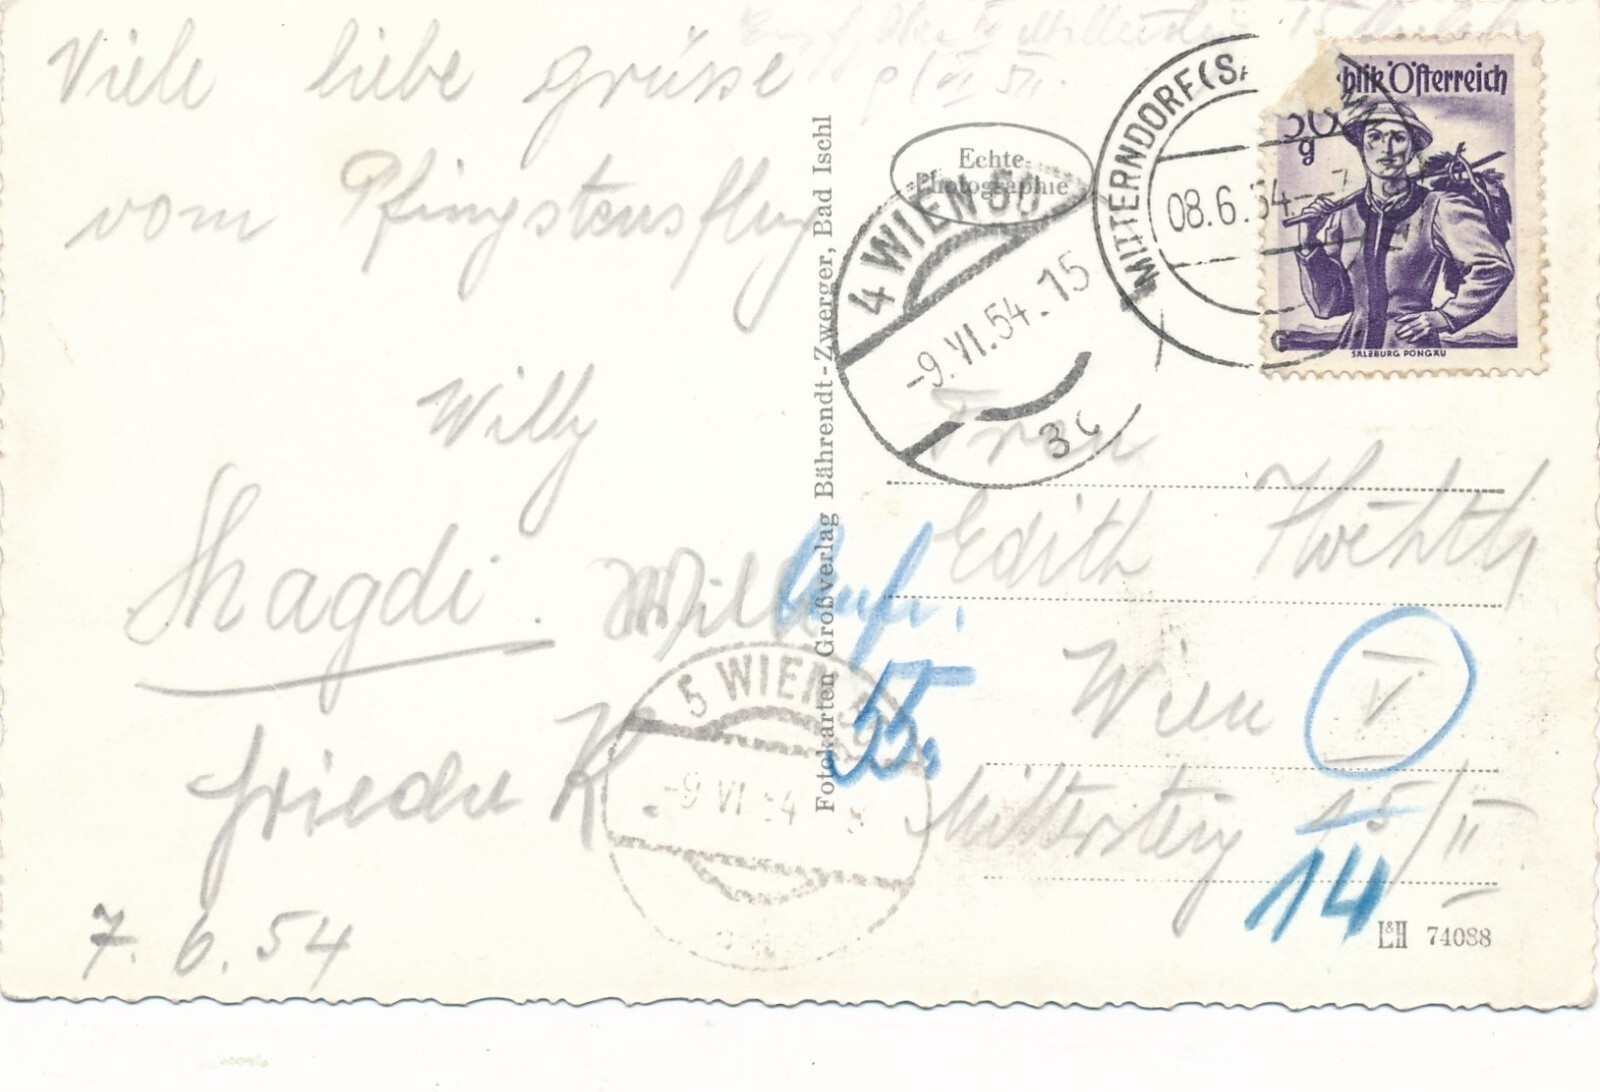 Viele liebe grüsse
vom Pfingstensflug
Willy
Friedu K
7. 6. 54
Fotokarten Großverlag Bährendt-Zwerger, Bad Ischl
Echte
Photographie
4 WIEN 50
-9. VI. 54. 15
MITTERNDORF (S
08.6.54
blik Österreich
30
g
SALZBURG PONGAU
Frau
Edith
Wien V
Mittersteig 15/II
55.
14
5 WIEN
-9 VI 54
L&H 74088